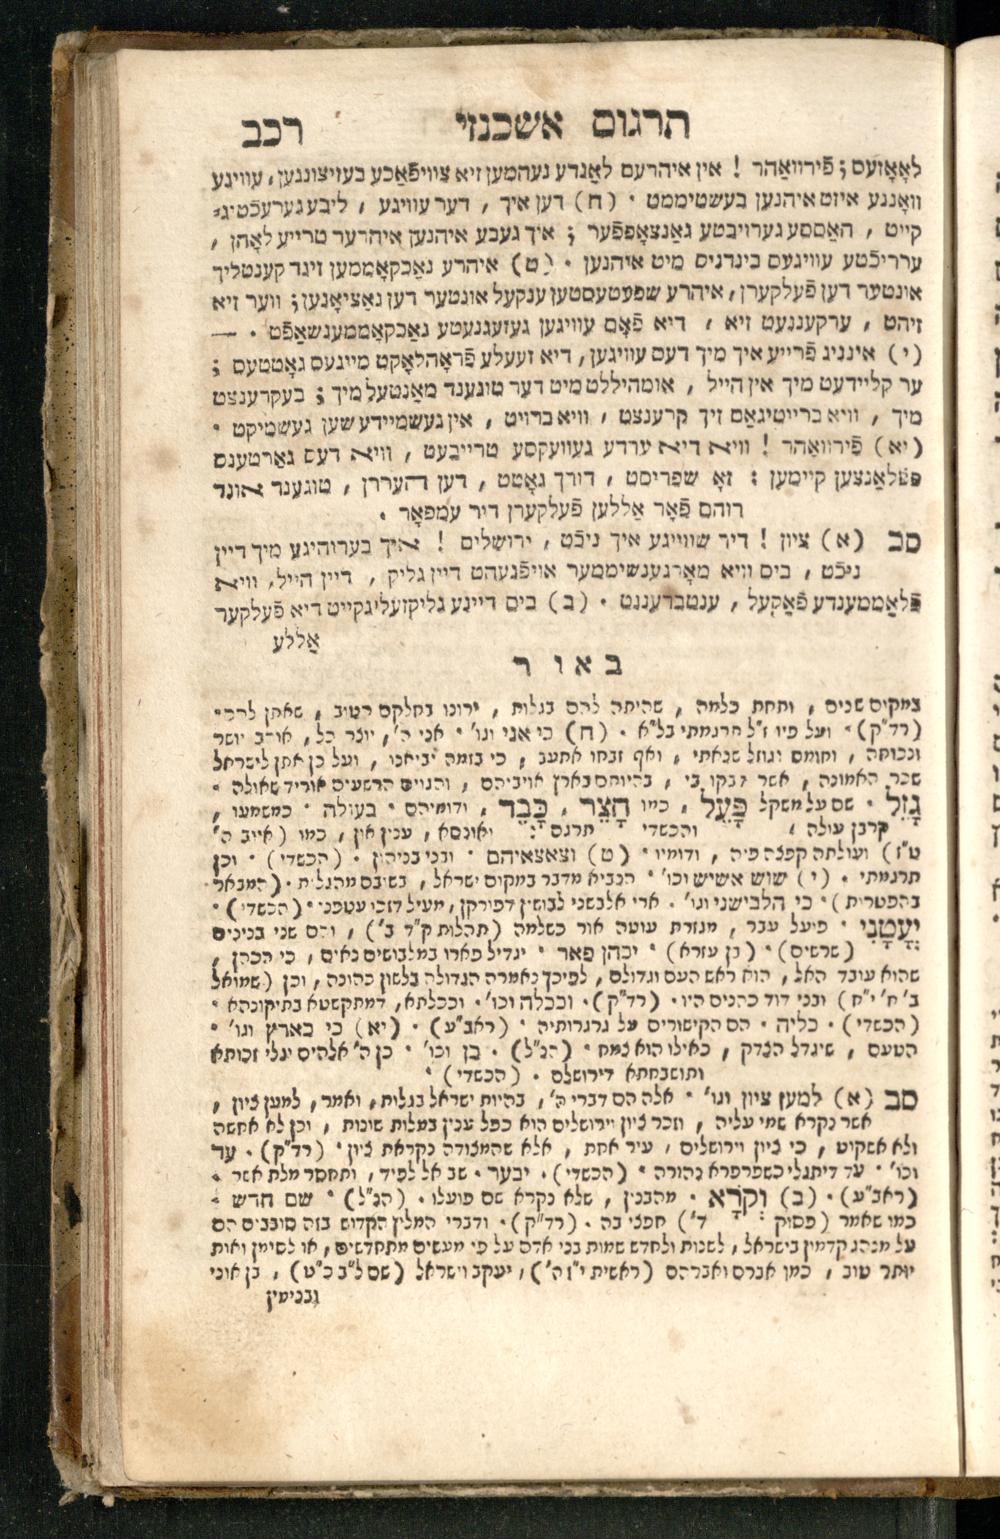 תרגום אשכנזי רכב
לאָאָזעס ; פֿירוואַהר ! אין איהרעם לאַנדע נעהמען זיא צווייפֿאַכע בעזיצונגען , עוויגע
וואָננע איזט איהנען בעשטיממט · (ח) דען איך , דער עוויגע , ליבע גערעכֿטיג=
קייט , האַססע גערויבטע גאַנצאָפּפֿער ; איך געבע איהנען איהרער טרייע לאָהן ,
ערריכֿטע עוויגעס בינדניס מיט איהנען · (ט) איהרע נאַכקאָממען זינד קענטליך
אונטער דען פֿעלקערן , איהרע שפּעטעסטען ענקעל אונטער דען נאַציאָנען ; ווער זיא
זיהט , ערקעננעט זיא , דיא פֿאָם עוויגען געזעגנעטע נאַכקאָממענשאַפֿט · —
(י) איננינ פֿרייע איך מיך דעס עוויגען , דיא זעעלע פֿראָהלאָקט מיינעס גאָטטעס ;
ער קליידעט מיך אין הייל , אומהיללט מיט דער טוגענד מאַנטעל מיך ; בעקרענצט
מיך , וויא ברייטיגאַם זיך קרענצט , וויא ברויט , אין געשמיידע שען געשמיקט ·
(יא) פֿירוואַהר ! וויא דיא ערדע געוועקסע טרייבעט , וויא דעס גאַרטענס
פּפֿלאַנצען קיימען : זאָ שפּריסט , דורך גאָטט , דען העררן , טוגענד אונד
רוהם פֿאָר אַללען פֿעלקערן דיר עמפּאָר ·
סב (א) ציון ! דיר שווייגע איך ניכֿט , ירושלים ! איך בערוהיגע מיך דיין
ניכֿט , ביס וויא מאָרגענשיממער אויפֿגעהט דיין גליק , דיין הייל , וויא
פֿלאַממענדע פֿאַקעל , ענטברעננט · (ב) ביס דיינע גליקזעליגקייט דיא פֿעלקער
אַללע
באור
במקום שנים , ותחת כלמה , שהיתה להם בגלות , ירונו בחלקם הטוב , שאתן להם·
(רד"ק)· ועל פיו ז"ל תרגמתי בל"א · (ח) כי אני וגו' · אני ה' , יוצר כל , אוהב יושר
ונכוחה , וחומס וגוזל שנאתי , ואף זבחו אתעב , כי בזמה יביאנו , ועל כן אתן לישראל
שכר האמונה , אשר דבקו בי , בהיותם בארץ אויביהם , והגוים הרשעים אוריד שאולה ·
גָזֵל · שם על משקל פָּעֵל , כמו חָצֵר , כָּבֵד , ודומיהם · בעולה · כמשמעו ,
קרבן עולה , והכשדי תרגם : ואונסא , ענין און , כמו (איוב ה'
ט"ז) ועולתה קפצה פיה , ודומיו · (ט) וצאצאיהם · ובני בניהון · (הכשדי) · וכן
תרגמתי · (י) שוש אשיש וכו' · הנביא מדבר במקום ישראל , בשובם מהגלות · (המבאר
בהפטרות)· כי הלבישני וגו' · ארי אלבשני לבושין דפורקן , מעיל דזכו עטפני· (הכשדי) ·
יְעָטָנִי · פועל עבר , מגזרת עוטה אור כשלמה (תהלות ק"ד ב') , והם שני בנינים
(שרשים)· (בן עזרא) · יכהן פאר · יגדיל פארו במלבושים נאים , כי הכהן ,
שהוא עובד האל , הוא ראש העם וגדולם , לפיכך נאמרה הגדולה בלשון כהונה , וכן (שמואל
ב' ח' י"ח) ובני דוד כהנים היו · (רד"ק)· וככלה וכו'· וככלתא , דמתקשטא בתיקונהא ·
(הכשדי) · כליה · הם הקישורים על גרגרותיה · (ראב"ע) · (יא) כי כארץ וגו' ·
הטעם , שיגדל הצדק , כאילו הוא צמח · (הנ"ל) · כן וכו' · כן ה' אלהים יגלי זכותא
ותושבחתא דירושלם · (הכשדי) ·
סב (א) למען ציון וגו' · אלה הם דברי ה' , בהיות ישראל בגלות , ואמר , למען ציון ,
אשר נקרא שמי עליה , וזכר ציון וירושלים הוא כפל ענין במלות שונות , וכן לא אחשה
ולא אשקוט , כי ציון וירושלים , עיר אחת , אלא שהמצודה נקראת ציון · (רד"ק) · עד
וכו' · עד דיתגלי כשפרפרא נהורה · (הכשדי) · יבער · שב אל לפיד , ותחסר מלת אשר ·
(ראב"ע) · (ב) וְקֹרָא · מהבנין , שלא נקרא שם פועלו · (הנ"ל) · שם חדש ·
כמו שאמר (פסוק ד') חפצי בה · (רד"ק)· ודברי המליץ הקדוש בזה סובבים הם
על מנהג קדמון בישראל , לשנות ולחדש שמות בני אדם על פי מעשים מתחדשים , או לסימן ואות
יותר טוב , כמן אברם ואברהם (ראשית י"ז ה') , יעקב וישראל (שם ל"ב כ"ט) , בן אוני
ובנימין